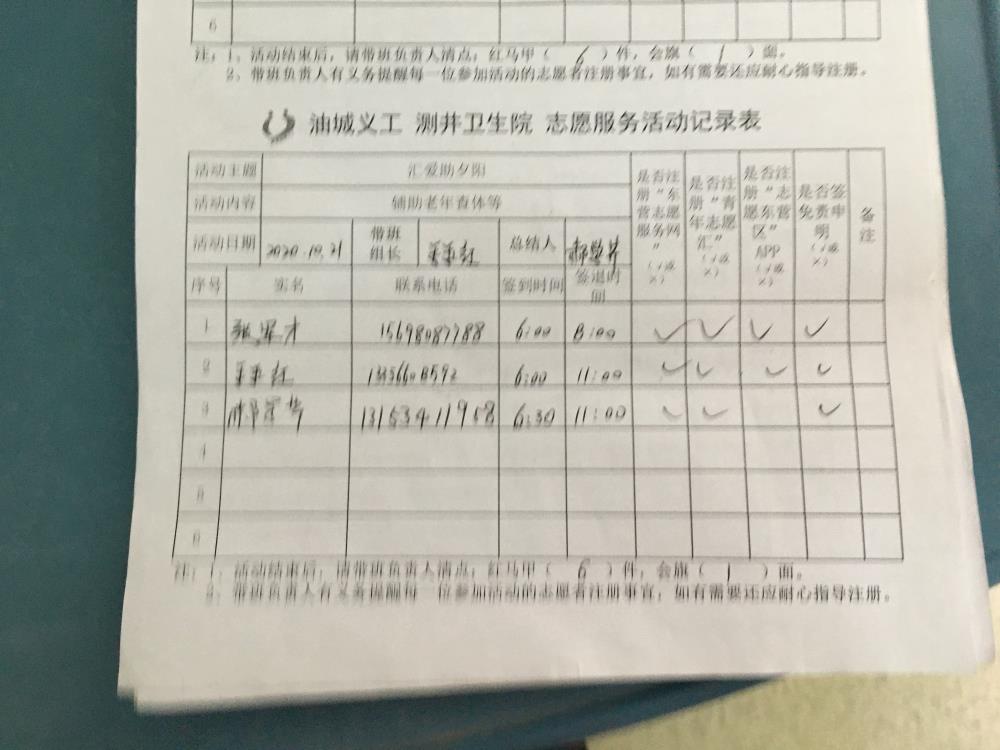 6
注：1、活动结束后，请带班负责人清点：红马甲（ 6 ）件，会旗（ 1 ）面。
2、带班负责人有义务提醒每一位参加活动的志愿者注册事宜，如有需要还应耐心指导注册。
油城义工 测井卫生院 志愿服务活动记录表
活动主题 汇爱助夕阳 是否注册“东营志愿服务网”（√或×） 是否注册“青年志愿汇”（√或×） 是否注册“志愿东营区”APP（√或×） 是否签免责申明（√或×） 备注
活动内容 辅助老年查体等
活动日期 2020.10.21 带班组长 总结人
序号 实名 联系电话 签到时间 签退时间
1 6:00 √ √ √ √
2 6:00 11:00 √ √ √ √
3 13153411958 6:30 11:00 √ √ √
4
5
6
注：1、活动结束后，请带班负责人清点：红马甲（ 6 ）件，会旗（ 1 ）面。
2、带班负责人有义务提醒每一位参加活动的志愿者注册事宜，如有需要还应耐心指导注册。